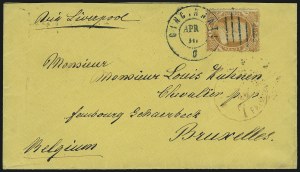 Via Liverpool
CINCINNATI
APR
O
Monsieur
Monsieur Louis
Chevalier
faubourg Schaerbeek
Bruxelles.
Belgium